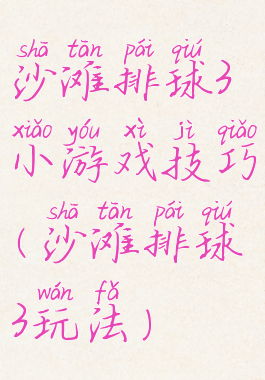 shā tān pái qiú
沙滩排球3
xiǎo yóu xì jì qiǎo
小游戏技巧
shā tān pái qiú
(沙滩排球
wán fǎ
3玩法)